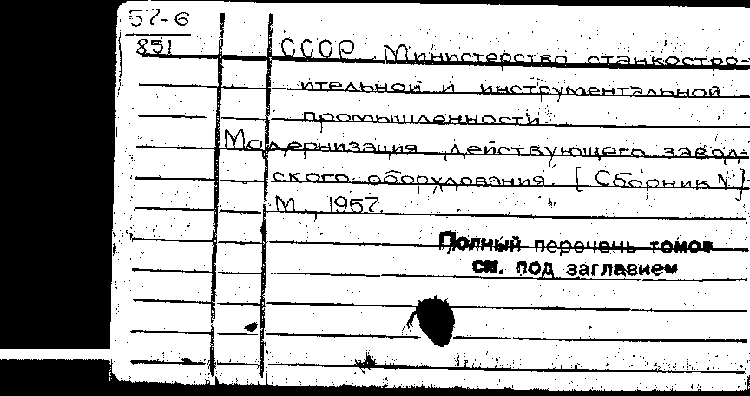 57-6
851
СССР. Министерство станкостро-
ительной и инструментальной
промышленности.
Модернизация действующего завод-
ского оборудования. [Сборник
М., 1957.
Полный перечень томов
см. под заглавием